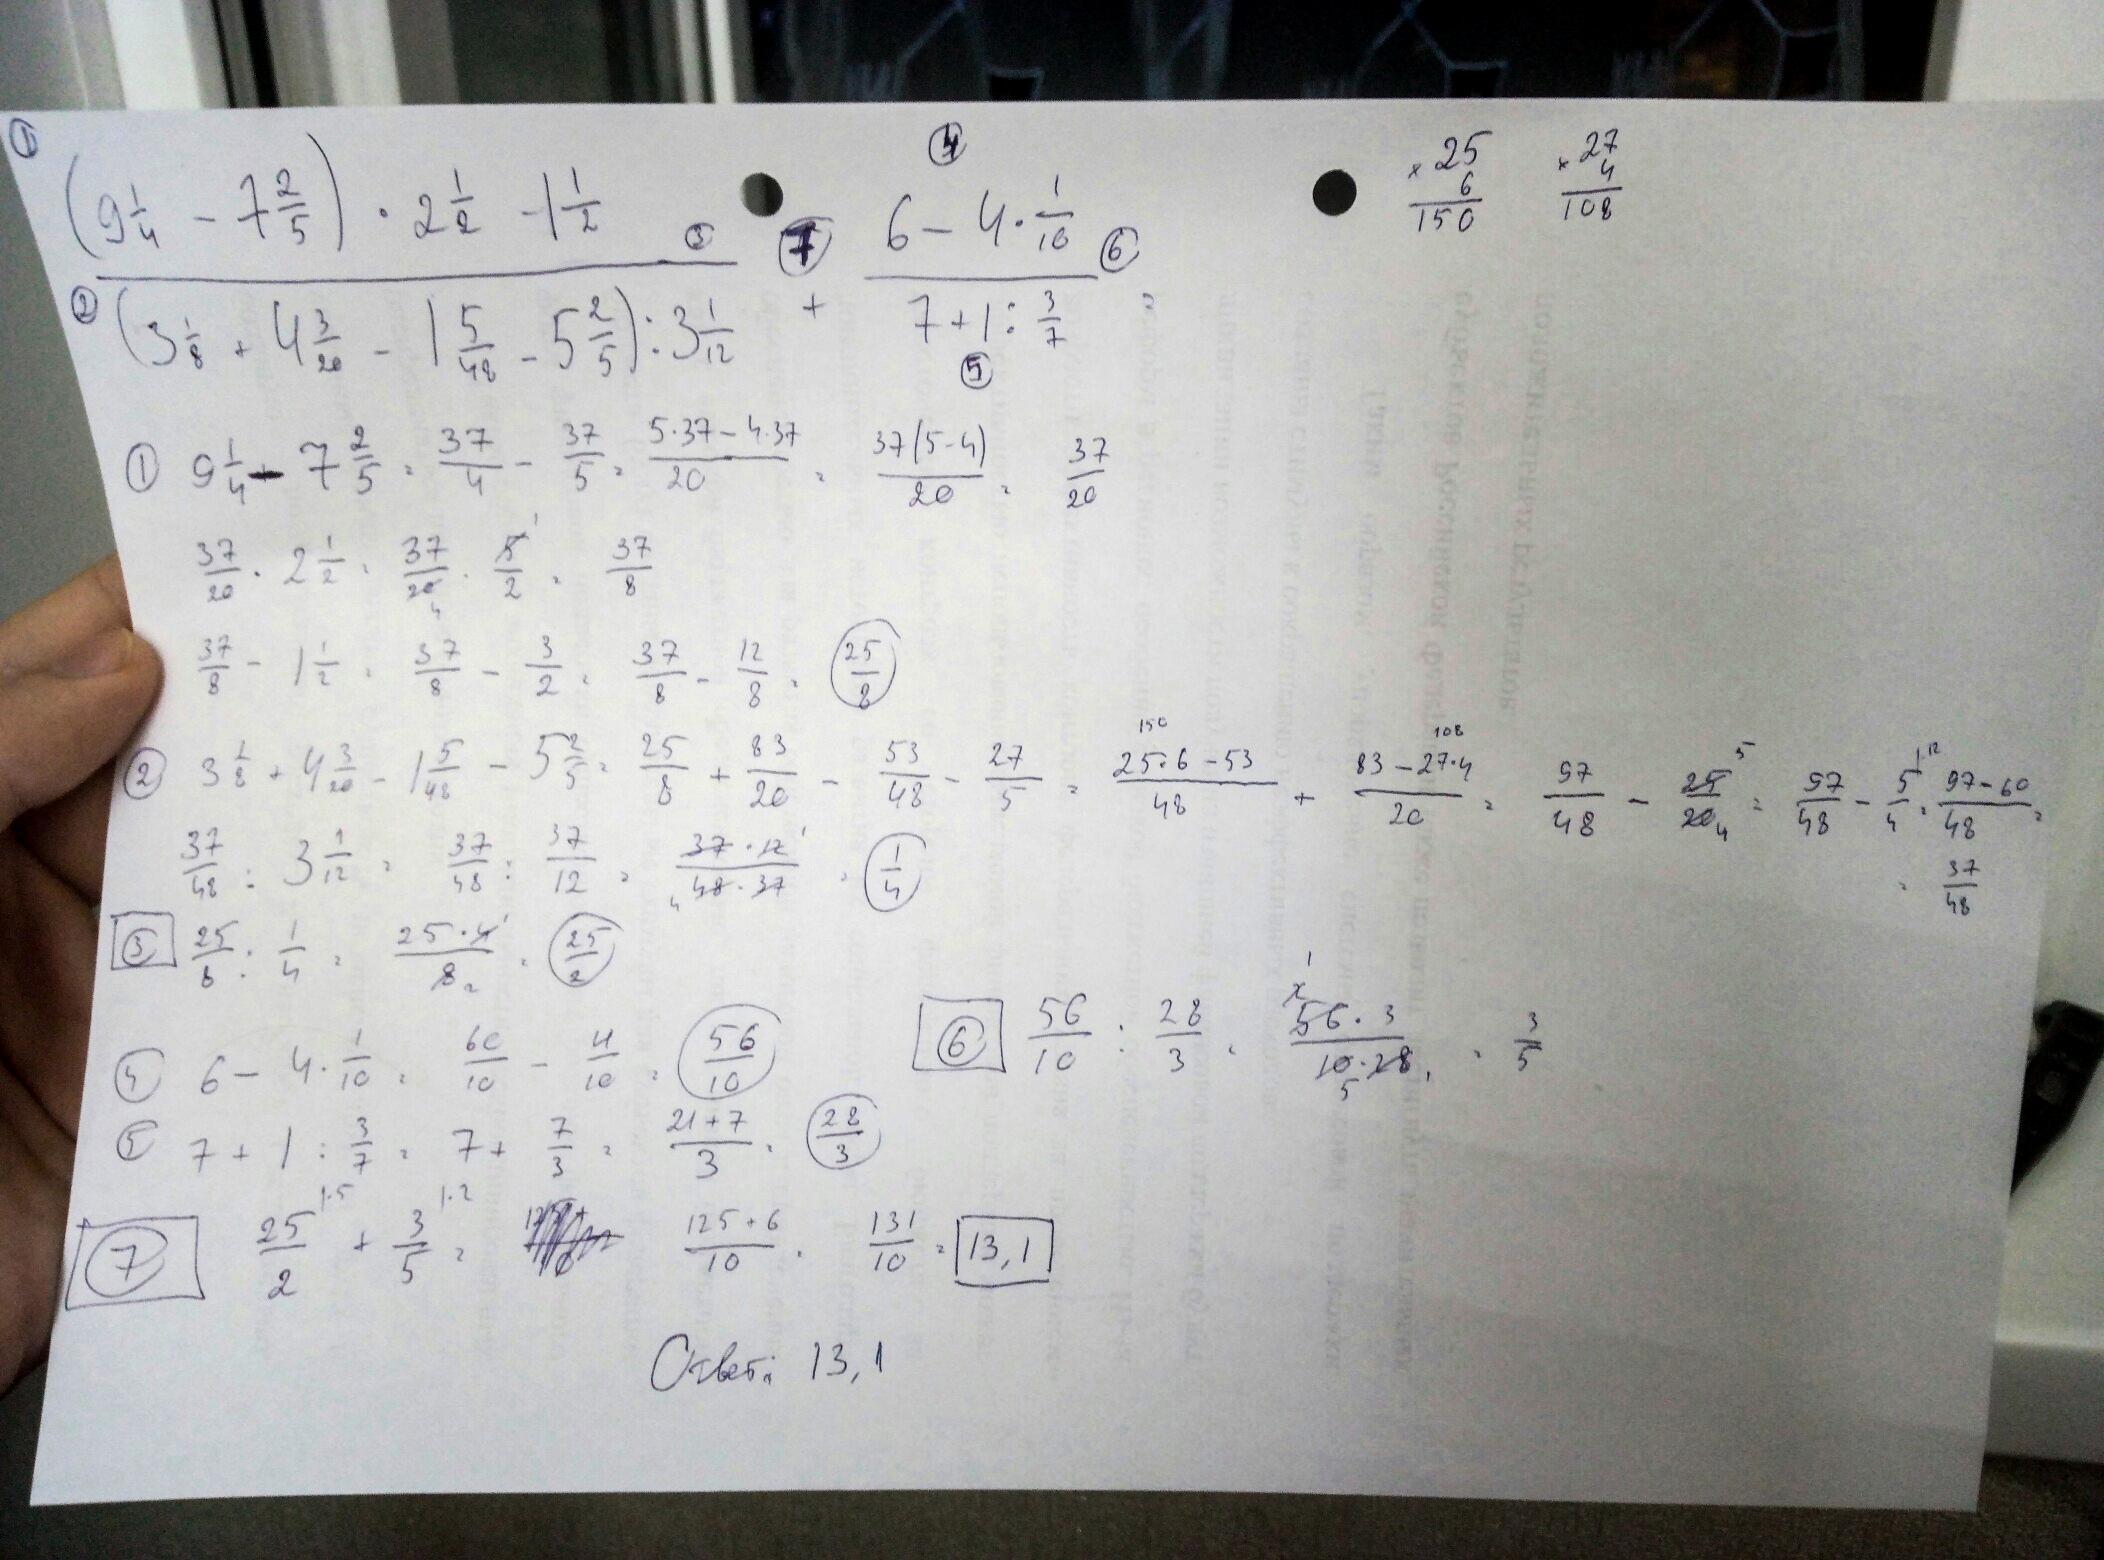 ① (9 1/4 − 7 2/5) · 2 1/2 − 1 1/2 ③ ⑦ ④ 6 − 4 · 1/10 ⑥
② (3 1/8 + 4 3/20 − 1 5/48 − 5 2/5) : 3 1/12 + 7 + 1 : 3/7 = ⑤
× 25 6 150
× 27 4 108
① 9 1/4 − 7 2/5 = 37/4 − 37/5 = (5·37 − 4·37)/20 = 37(5−4)/20 = 37/20
37/20 · 2 1/2 = 37/20 4 · 5/2 1 = 37/8
37/8 − 1 1/2 = 37/8 − 3/2 = 37/8 − 12/8 = 25/8
② 3 1/8 + 4 3/20 − 1 5/48 − 5 2/5 = 25/8 + 83/20 − 53/48 − 27/5 = 150 (25·6 − 53)/48 + 108 (83 − 27·4)/20 = 97/48 − 25/20 5 4 = 97/48 − 5/4 |12 = (97−60)/48 =
= 37/48
37/48 : 3 1/12 = 37/48 : 37/12 = (37 · 12 1)/(4 48 · 37) = 1/4
③ 25/8 : 1/4 = (25 · 4 1)/(8 2) = 25/2
④ 6 − 4 · 1/10 = 60/10 − 4/10 = 56/10
⑤ 7 + 1 : 3/7 = 7 + 7/3 = (21 + 7)/3 = 28/3
⑥ 56/10 : 28/3 = (56 · 3)/(10 · 28) 1 5 1 = 3/5
⑦ 25/2 |·5 + 3/5 |·2 = (125 + 6)/10 = 131/10 = 13,1
Ответ: 13,1